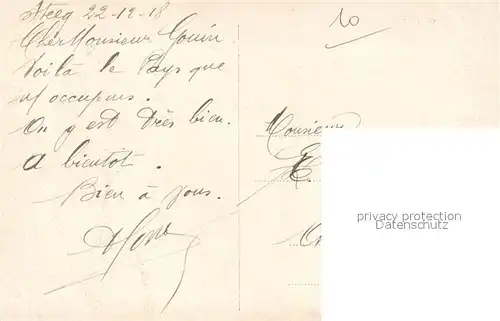 Steeg 22-12-18
Cher Monsieur Gouin
Voilà le Pays que
occupons.
On y est très bien.
A bientôt.
Bien à vous.
10
Monsieur
privacy protection
Datenschutz